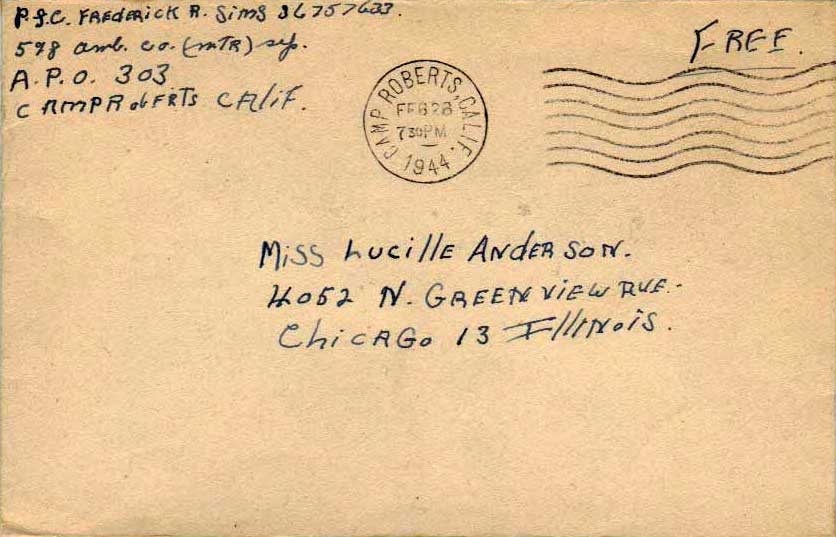 Pfc. FREDERICK R. Sims 36757633.
598 amb. co. (mTR) sep.
A.P.O. 303
CAMP ROBERTS CALIF.
FREE.
CAMP ROBERTS, CALIF.
FEB 28
730PM
1944
Miss Lucille ANDERSON.
4052 N. GREENVIEW AVE.
ChicAGo 13 IllINois.